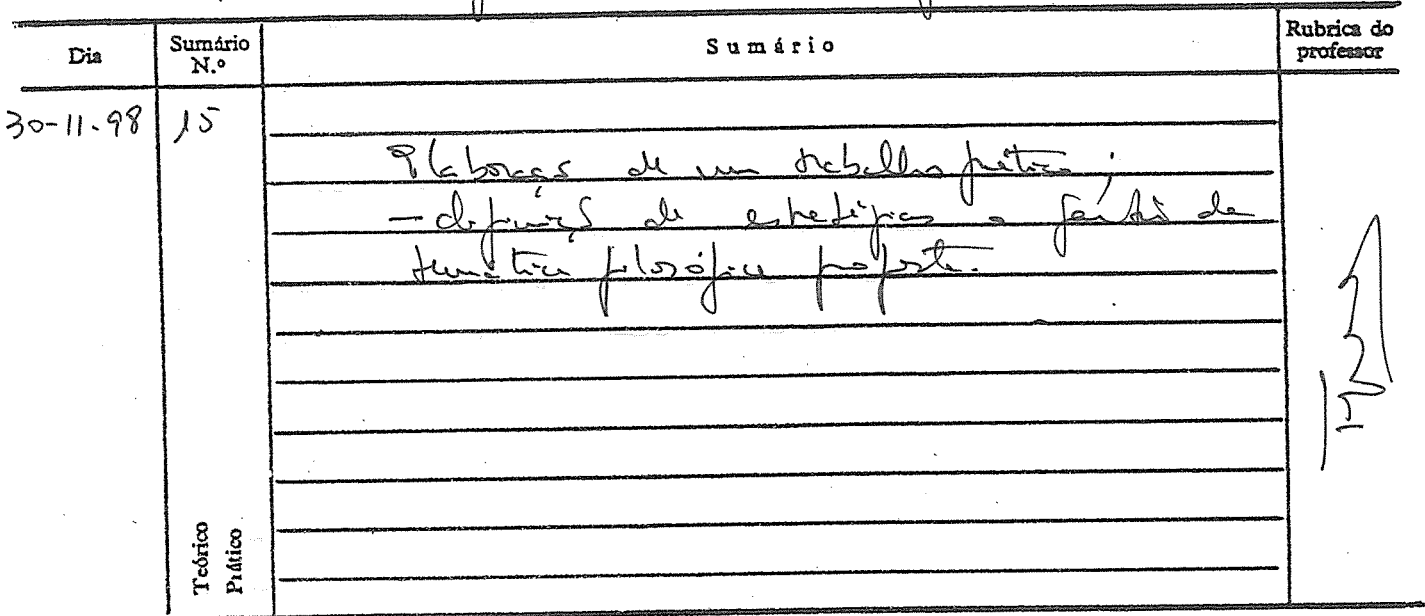 Dia Sumário N.º Sumário Rubrica do professor
30-11-98 15
Elaboração de um trabalho prático;
- definição de estratégias e de
temática filosófica proposta.
Teórico
Prático